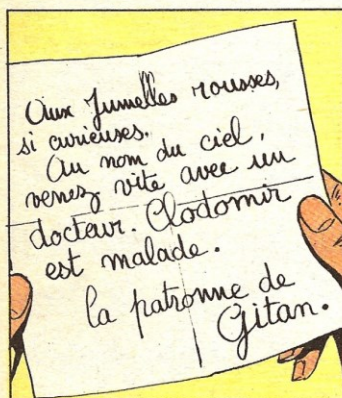 Aux Jumelles rousses,
si curieuses.
Au nom du ciel,
venez vite avec un
docteur. Clodomir
est malade.
la patronne de
Gitan.